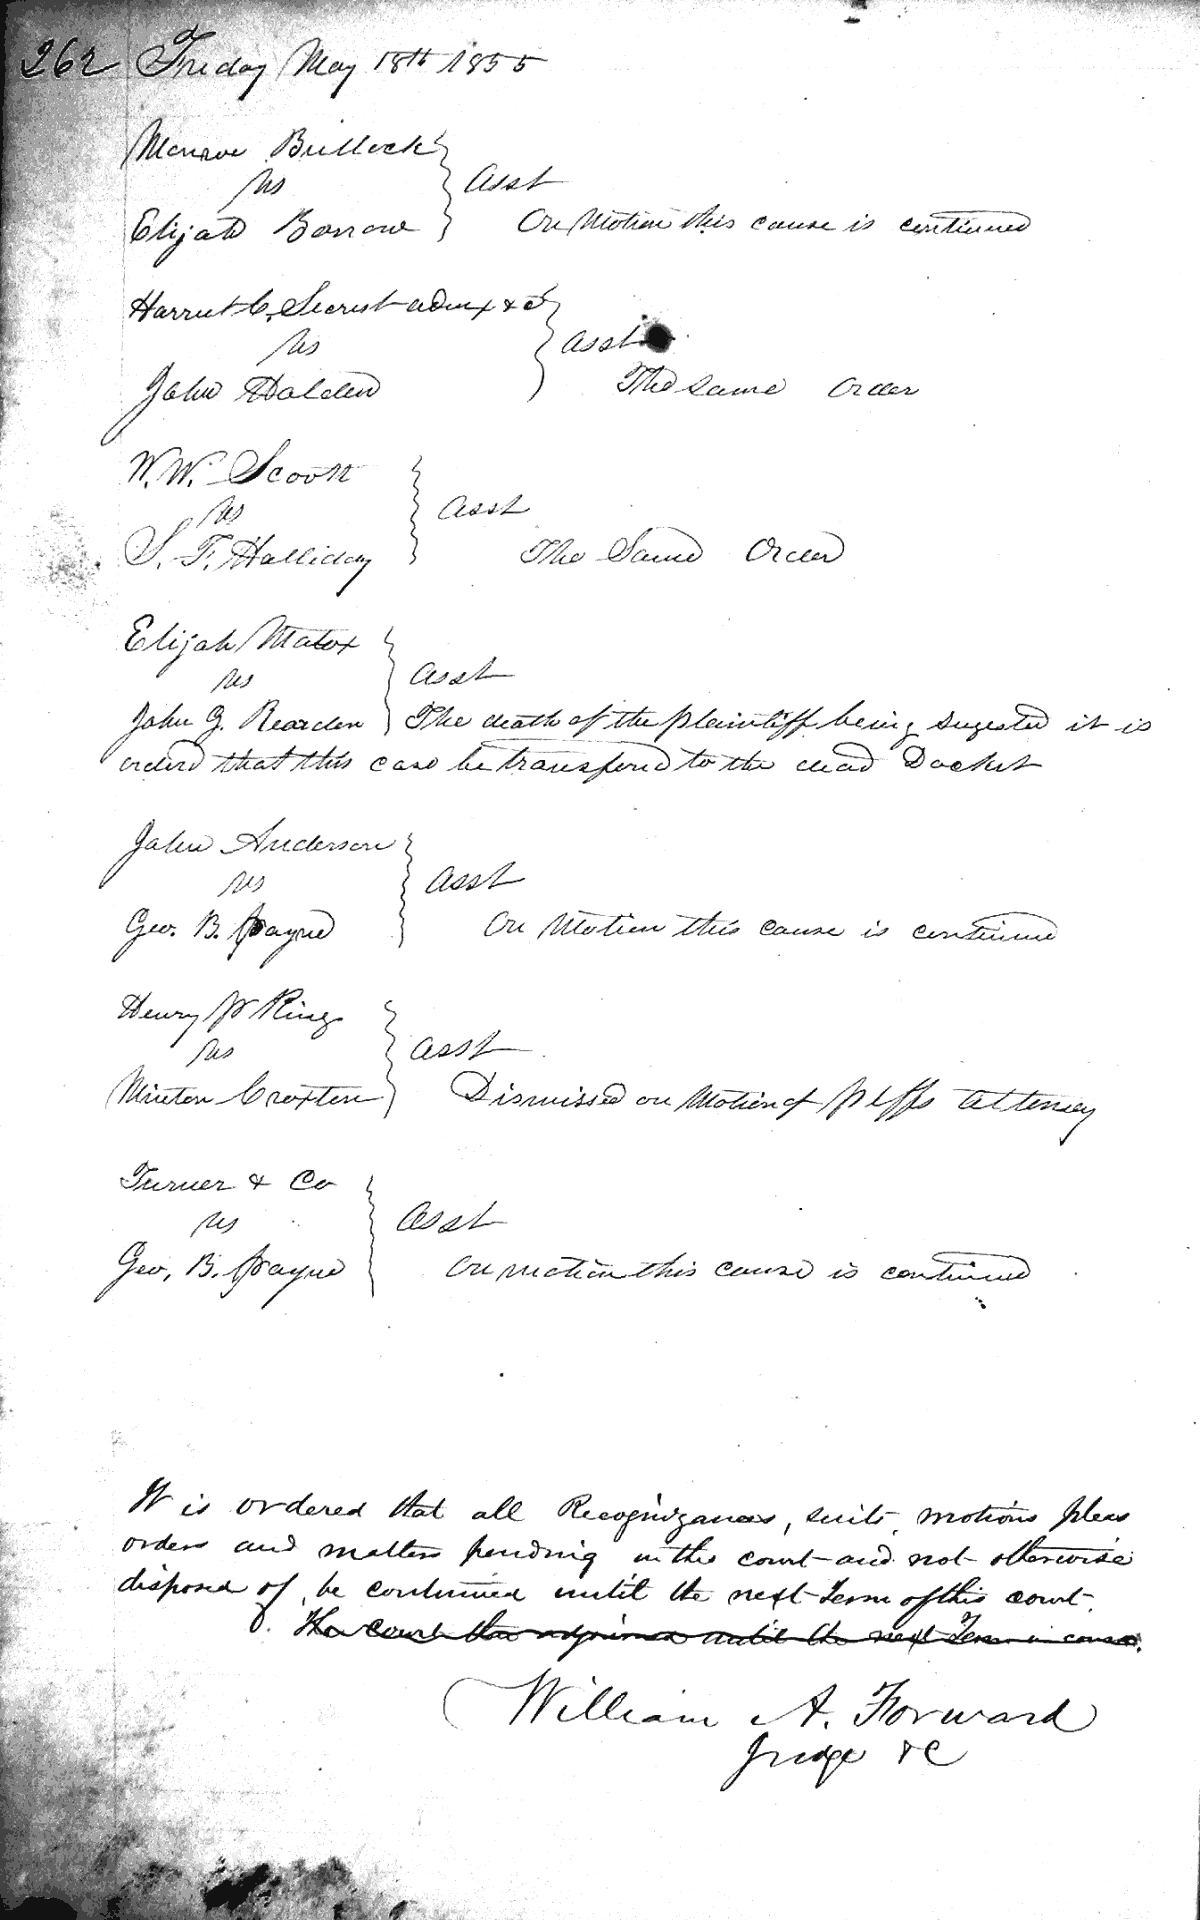 262 Friday May 18th 1855
Monroe Bullock
vs Asst
Elijah Barrow On Motion this cause is continued
Harriet C. Secrest admx &c
vs Asst
John Holden The same Order
W. W. Scott
vs Asst
S. F. Halliday The Same Order
Elijah Matox
vs Asst
John G. Rearden The death of the plaintiff being sugested it is
orderd that this case be transferd to the dead Docket
John Anderson
vs Asst
Geo. B. Payne On Motion this cause is continued
Henry P King
vs Asst
Minton Croxton Dismissed on Motion of Plffs attorney
Turner & Co
vs Asst
Geo, B. Payne On motion this cause is continued
It is ordered that all Recognizances, suits, motions pleas
orders and matters pending in this court and not otherwise
disposed of, be continued until the next Term of this court.
The court then adjourned until the next Term in course.
William A. Forward
Judge &c